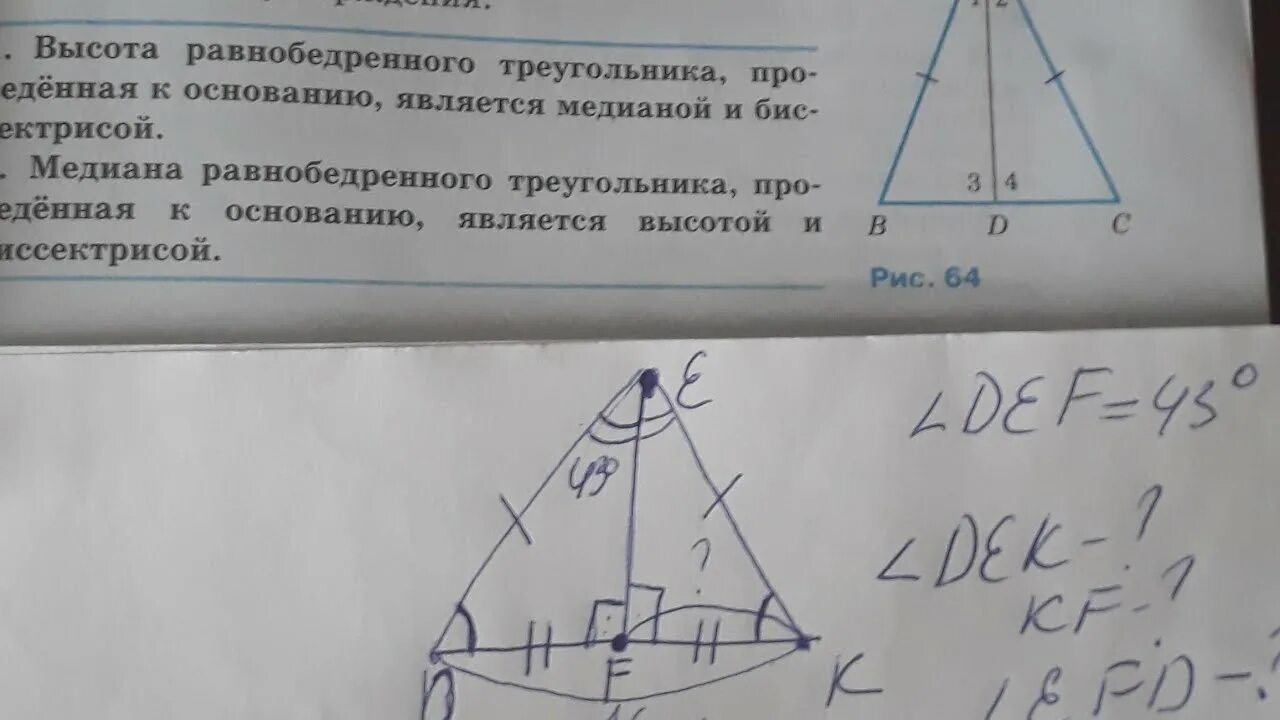 . Высота равнобедренного треугольника, про-
едённая к основанию, является медианой и бис-
ектрисой.
. Медиана равнобедренного треугольника, про-
едённая к основанию, является высотой и
иссектрисой.
1 2
3 4
B D C
Рис. 64
E
∠DEF=43°
43°
∠DEK-?
?
KF-?
F
K
∠EFD-?
D